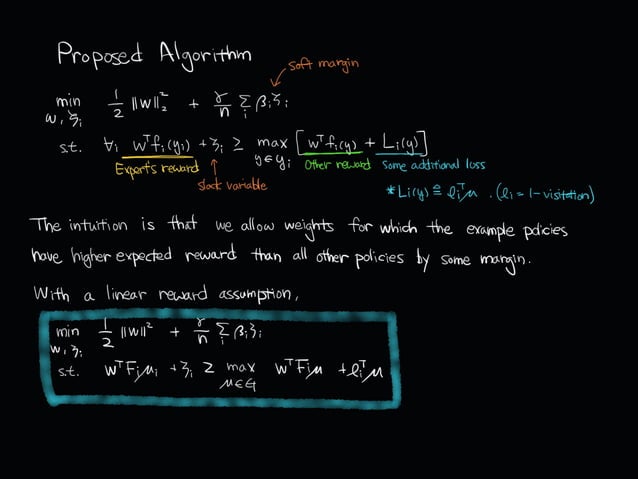 Proposed Algorithm
soft margin
min w, ξi 1/2 ||w||₂² + γ/n Σi βi ξi
s.t. ∀i wᵀfi(yi) + ξi ≥ max y∈Yi [wᵀfi(y) + Li(y)]
Expert's reward Other reward Some additional loss
slack variable
* Li(y) ≙ liᵀμ . (li = 1 - visitation)
The intuition is that we allow weights for which the example policies
have higher expected reward than all other policies by some margin.
With a linear reward assumption,
min w, ξi 1/2 ||w||² + γ/n Σi βi ξi
s.t. wᵀFiμi + ξi ≥ max μ∈Gi wᵀFiμ + liᵀμ